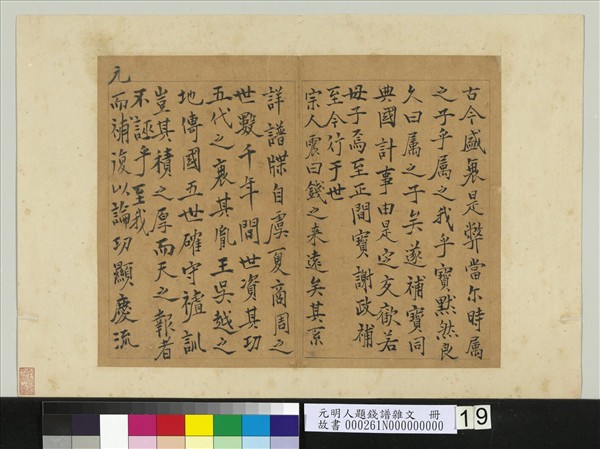 古今盛衰是弊當尔時属
之子乎属之我乎寳默然良
久曰属之子矣遂補寳同
典國計事由是定交歡若
母子焉至正間寳謝政補
至今行于世
宗人震曰錢之来遠矣其系
詳譜牒自虞夏商周之
世數千年間世資其功
五代之衰其胤王吳越之
地傳國五世確守禮訓
豈其積之厚而天之報者
不誣乎至我
元而補復以論功顯慶流
元明人題錢譜雜文 冊
故書 000261N000000000
19